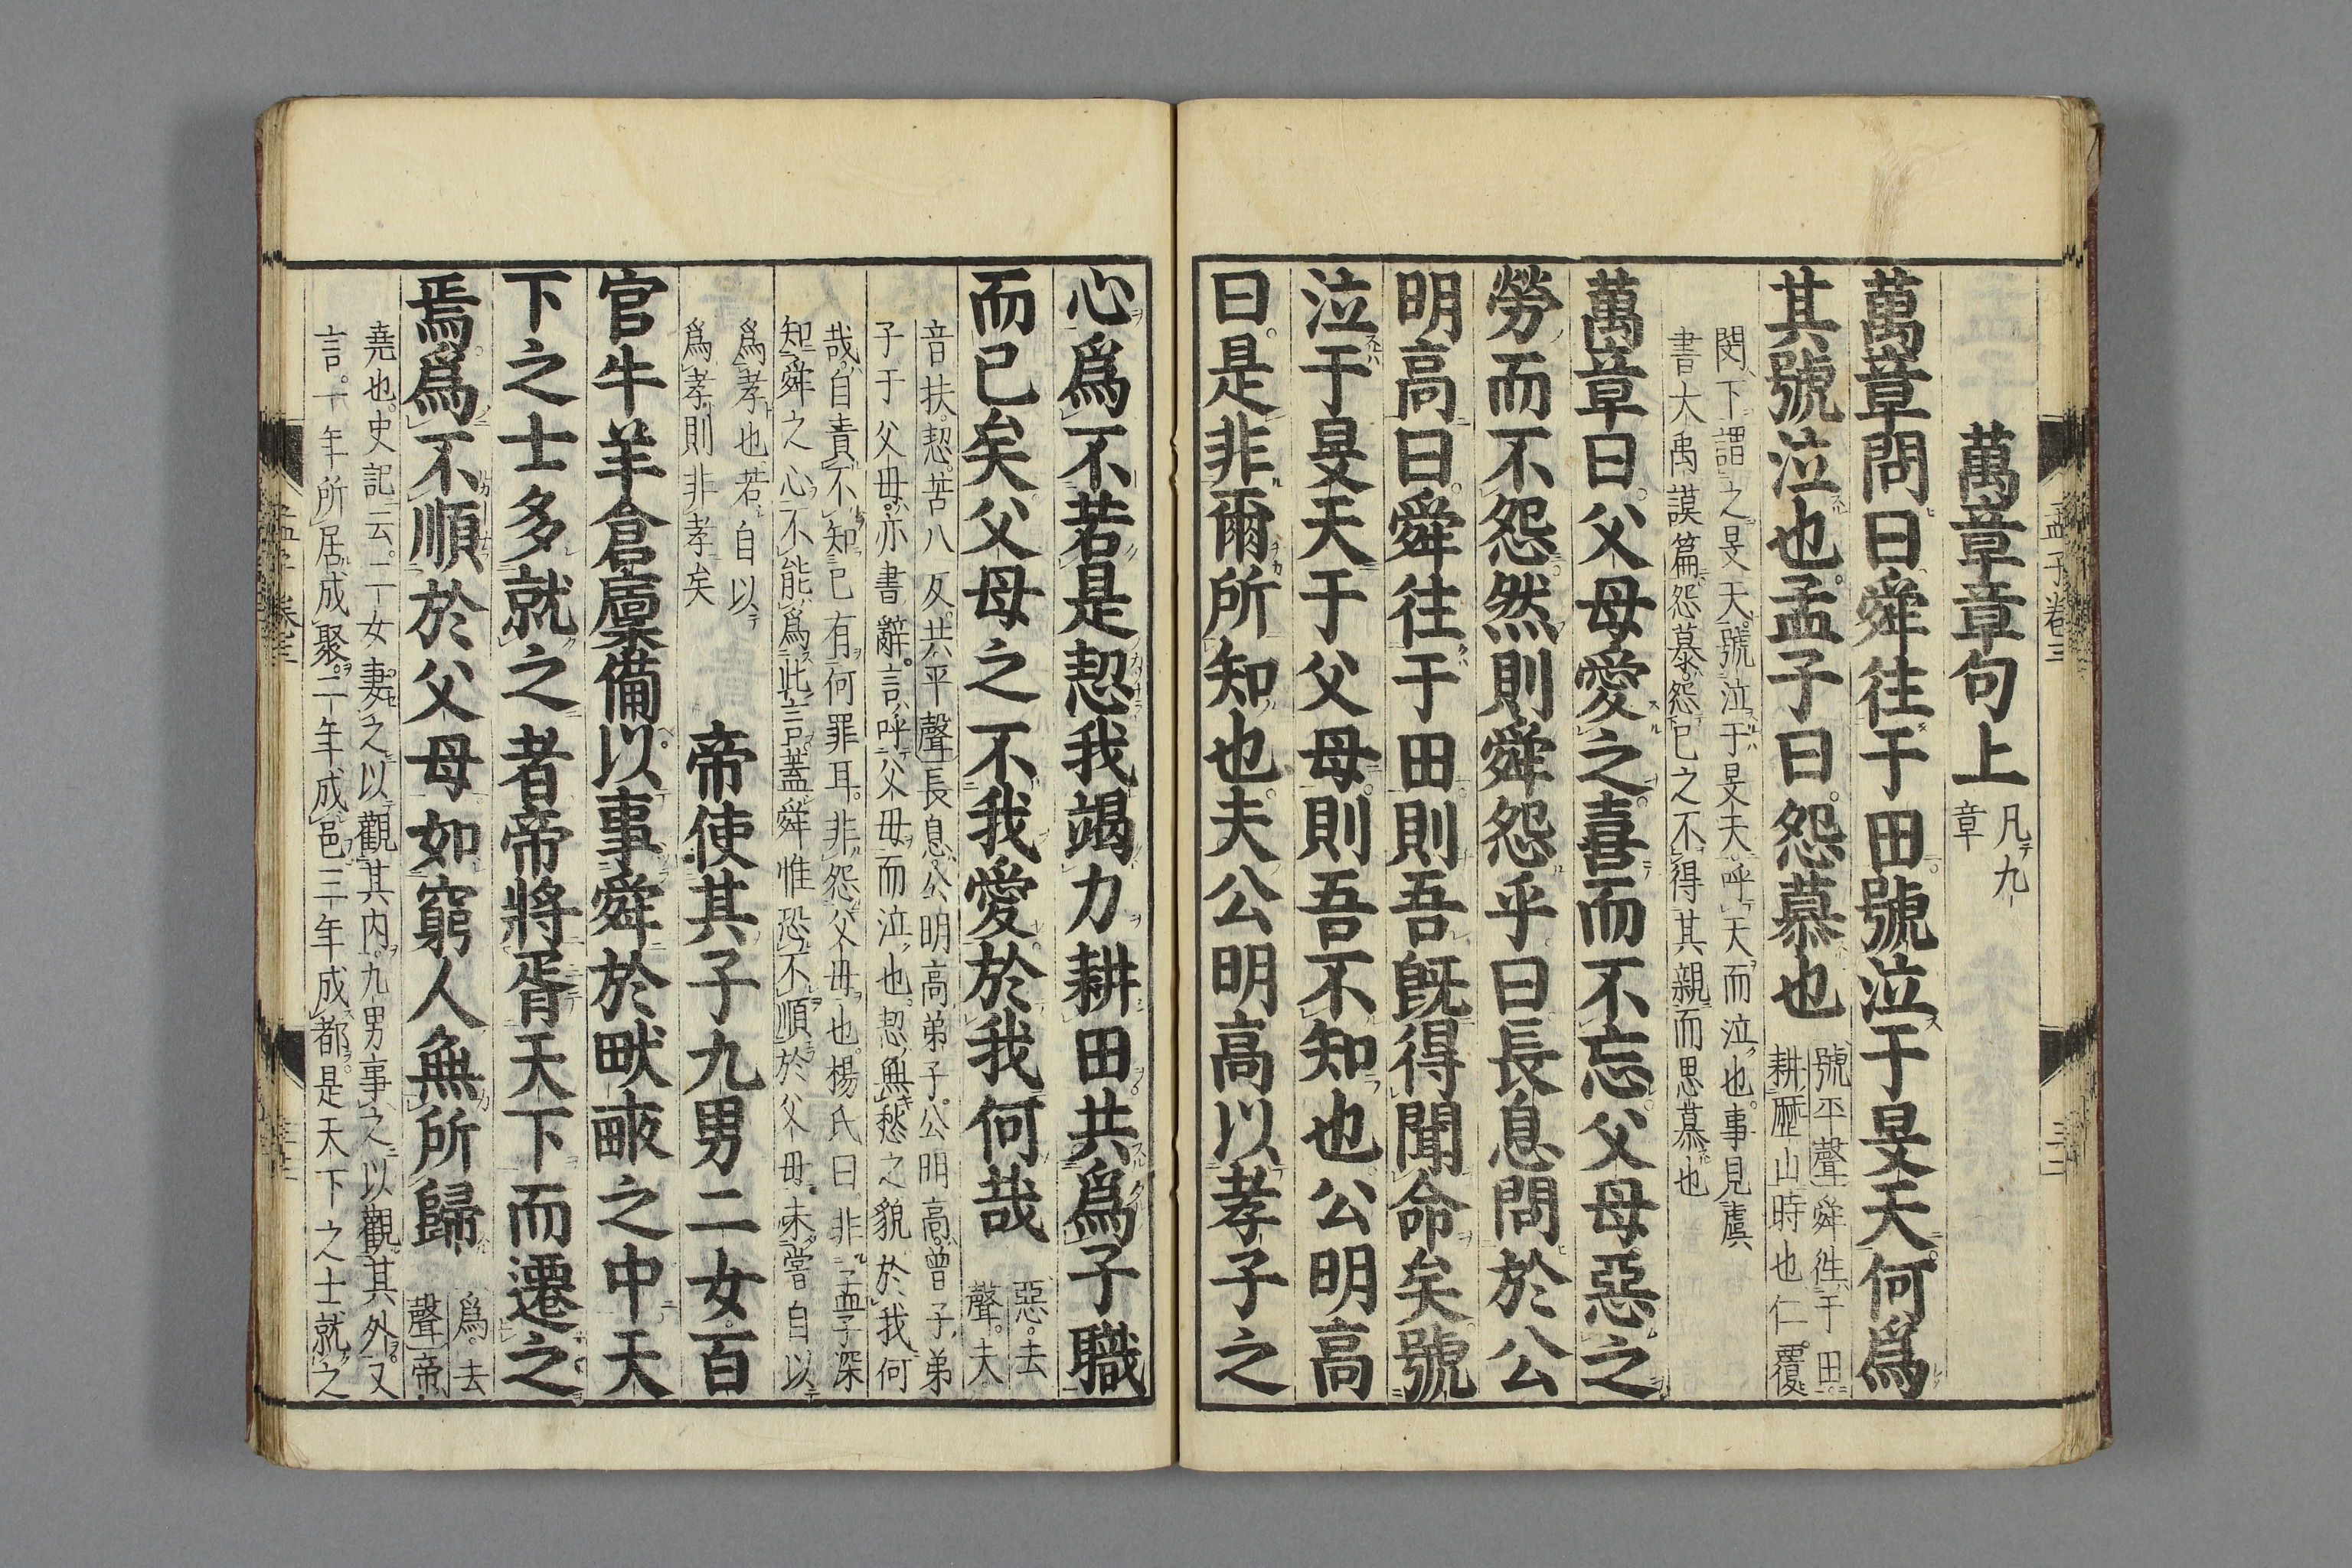 孟子卷三
三二
萬章章句上
凡九
章
萬章問曰舜往于田號泣于旻天何爲
其號泣也孟子曰怨慕也
號平聲舜徃于田
耕歷山時也仁覆
閔下謂之旻天號泣于旻天呼天而泣也事見虞
書大禹謨篇怨慕怨已之不得其親而思慕也
萬章曰父母愛之喜而不忘父母惡之
勞而不怨然則舜怨乎曰長息問於公
明高曰舜往于田則吾旣得聞命矣號
泣于旻天于父母則吾不知也公明高
曰是非爾所知也夫公明高以孝子之
心爲不若是恝我竭力耕田共爲子職
而已矣父母之不我愛於我何哉
惡去
聲夫
音扶恝苦八反共平聲長息公明高弟子公明高曾子弟
子于父母亦書辭言呼父母而泣也恝無愁之貌於我何
哉自責不知已有何罪耳非怨父母也楊氏曰非孟子深
知舜之心不能爲此言蓋舜惟恐不順於父母未嘗自以
爲孝也若自以
爲孝則非孝矣
帝使其子九男二女百
官牛羊倉廩備以事舜於畎畝之中天
下之士多就之者帝將胥天下而遷之
焉爲不順於父母如窮人無所歸
爲去
聲帝
堯也史記云二女妻之以觀其内九男事之以觀其外又
言一年所居成聚二年成邑三年成都是天下之士就之
孟子卷三